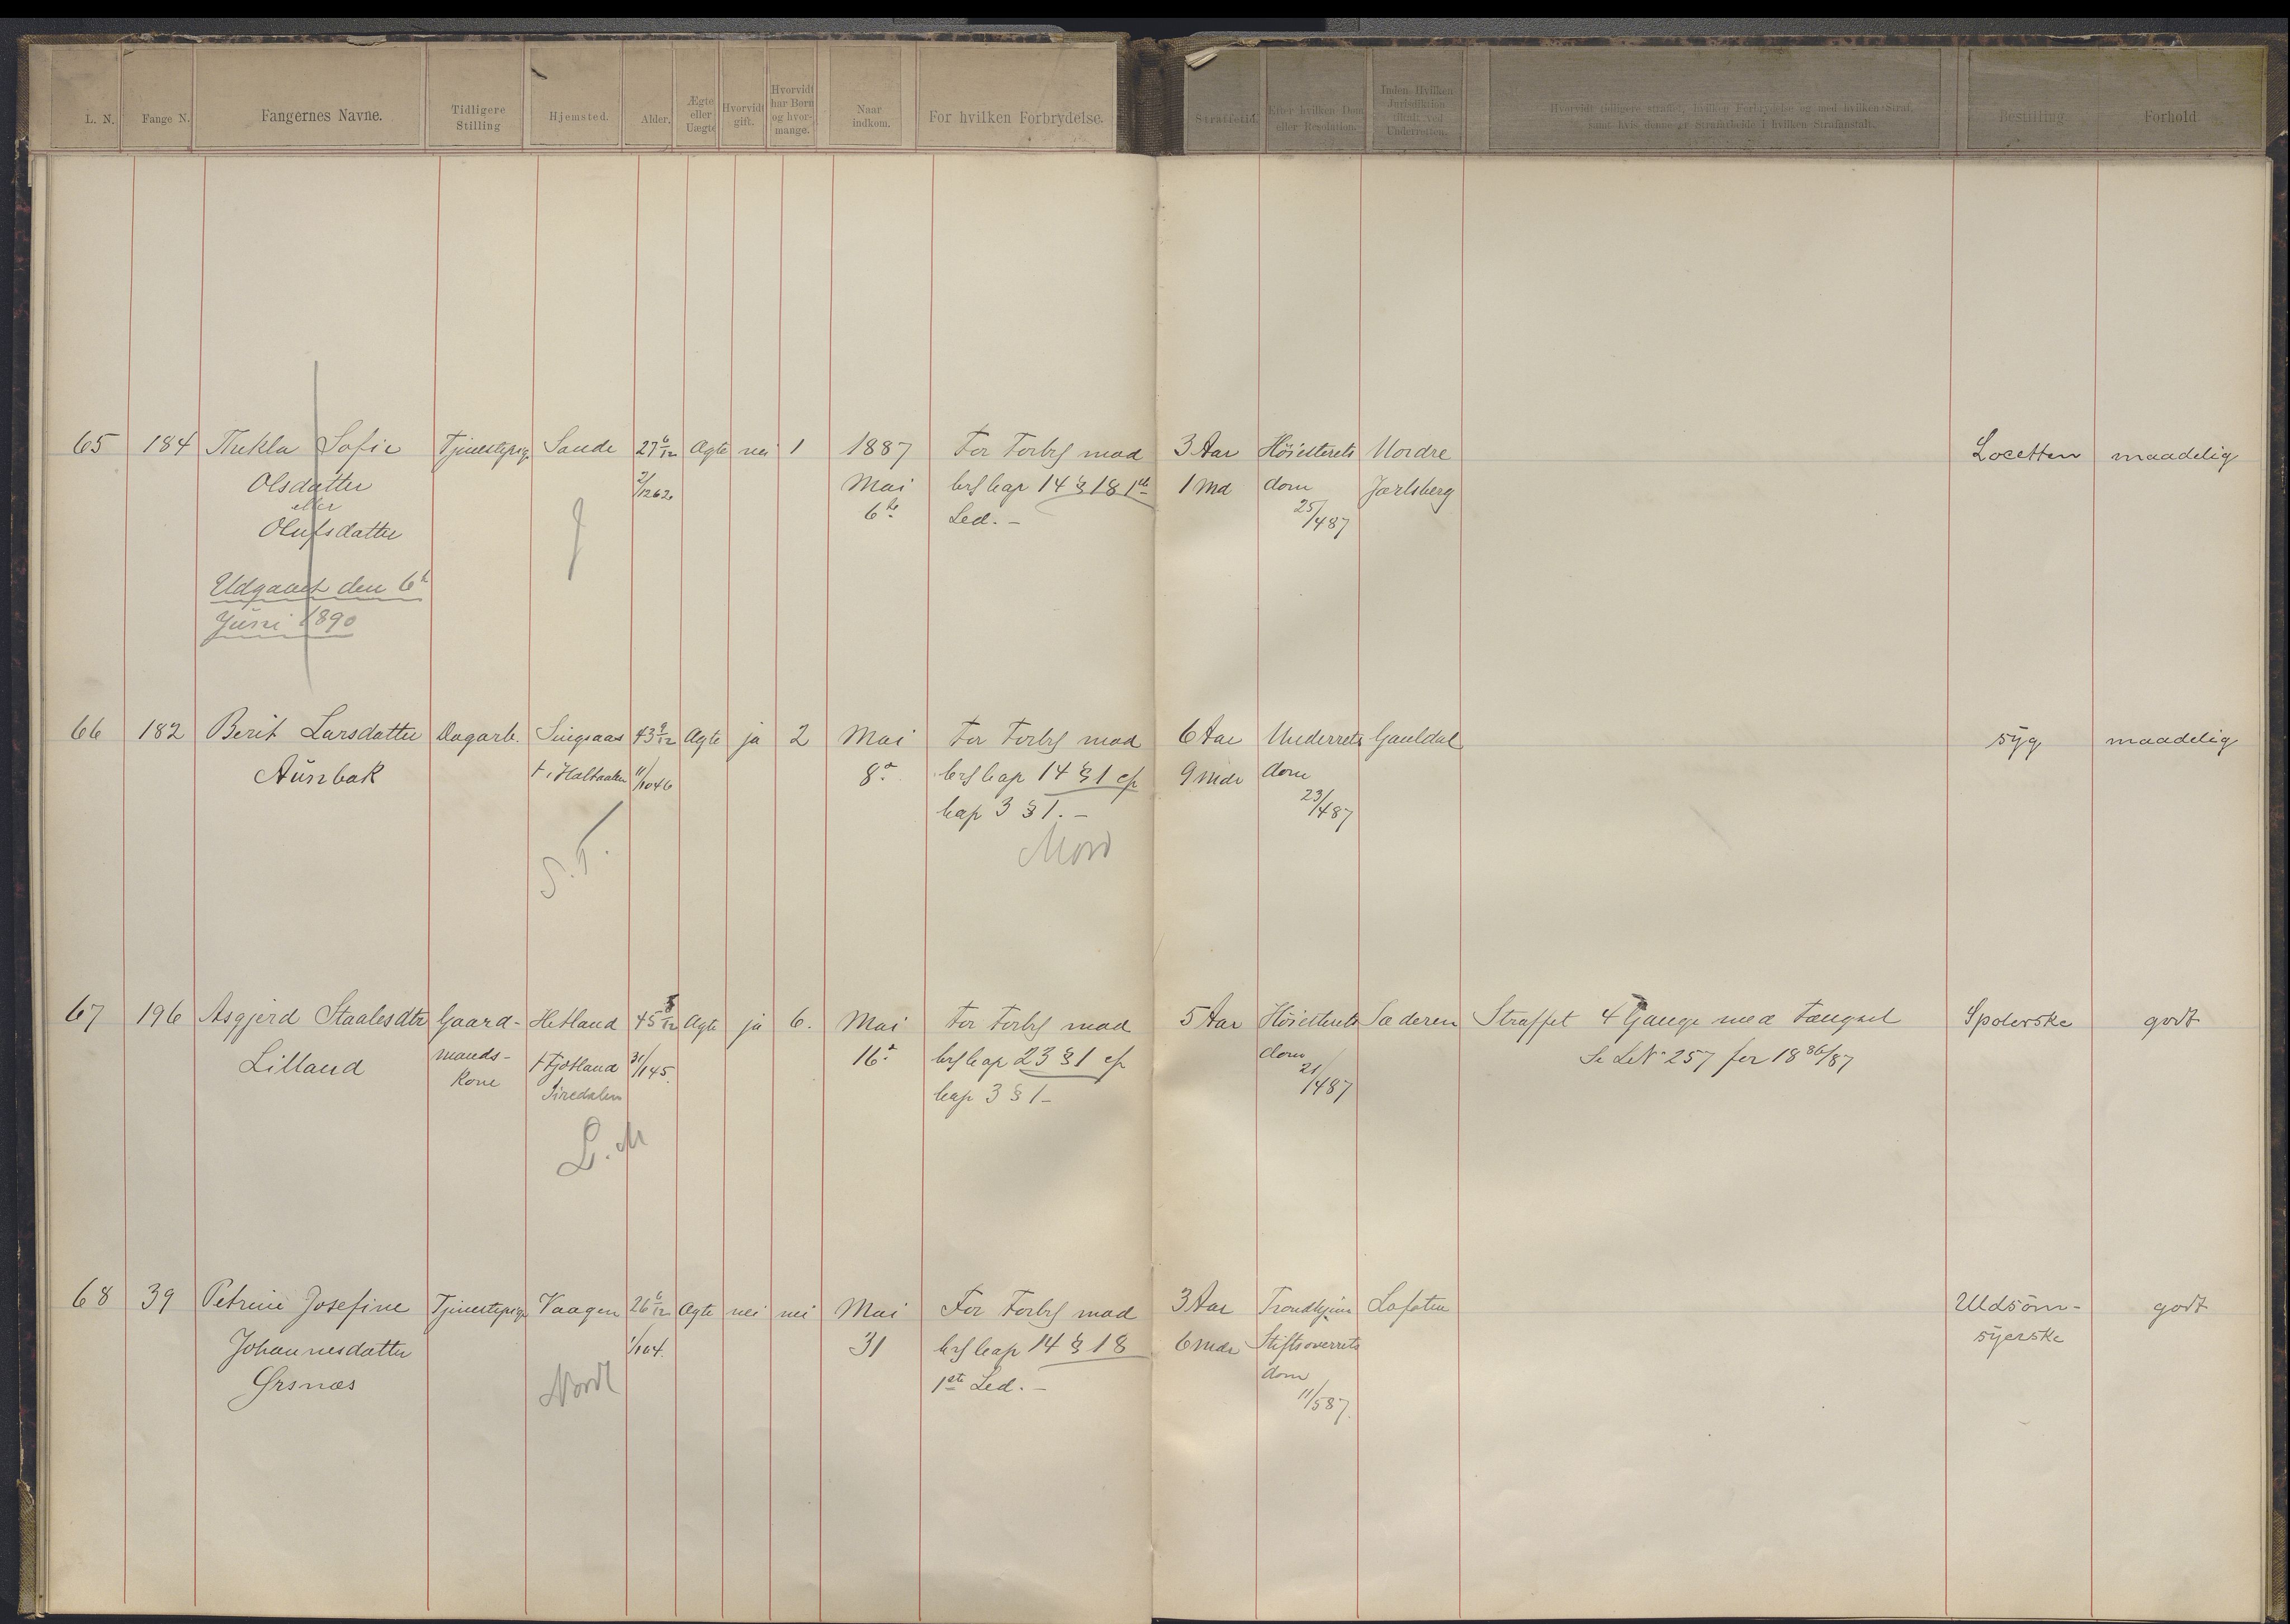 L. N.
Fange N.
Fangernes Navne.
Tidligere
Stilling
Hjemsted.
Alder.
Ægte
eller
Uægte
Hvorvidt
gift.
Hvorvidt
har Børn
og hvor-
mange.
Naar
indkom.
For hvilken Forbrydelse.
Straffetid.
Efter hvilken Dom
eller Resolution.
Inden Hvilken
Jurisdiktion
tiltalt ved
Underretten.
Hvorvidt tidligere straffet, hvilken Forbrydelse og med hvilken Straf,
samt hvis denne er Strafarbeide i hvilken Strafanstalt.
Bestilling
Forhold
65 184 Thekla Sofie Tjenestepige Sande 27 6/12 Ægte nei 1 1887 For Forbr mod 3 Aar Høiesterets Nordre Locetten maadelig
Olsdatter 2/12 62 Mai krl kap 14 § 18 1ste 1 Md dom Jarlsberg
eller 6te Led. - 25/4 87
Olufsdatter
J
Udgaaet den 6te
Juni 1890
66 182 Berit Larsdatter Dagarb. Singsaas 43 6/12 Ægte ja 2 Mai For Forbr mod 6 Aar Underrets Gauldal syg maadelig
Aunbak f. i Holtaalen 11/10 46 8de krl kap 14 § 1 cfr 9 Mdr dom
kap 3 § 1. - 23/4 87
Mord
S. T.
67 196 Asgjerd Staalesdtr Gaard- Hetland 45 5/12 Ægte ja 6. Mai For Forbr mod 5 Aar Høiesterets Jæderen Straffet 4 Gange med Fængsel Spolerske godt
Lilland mands- f Fjotland 31/1 45. 16de krl kap 23 § 1 cfr dom Se LN 257 for 1886/87
kone Siredalen kap 3 § 1 - 21/4 87
L. M
68 39 Petrine Josefine Tjenestepige Vaagen 26 6/12 Ægte nei nei Mai For Forbr mod 3 Aar Trondhjems Lofoten Udsøm- godt
Johannesdatter 31 krl kap 14 § 18 6 Mdr Stiftsoverrets syerske
Ørsnæs 1ste Led. - dom
Nordl 11/5 87.